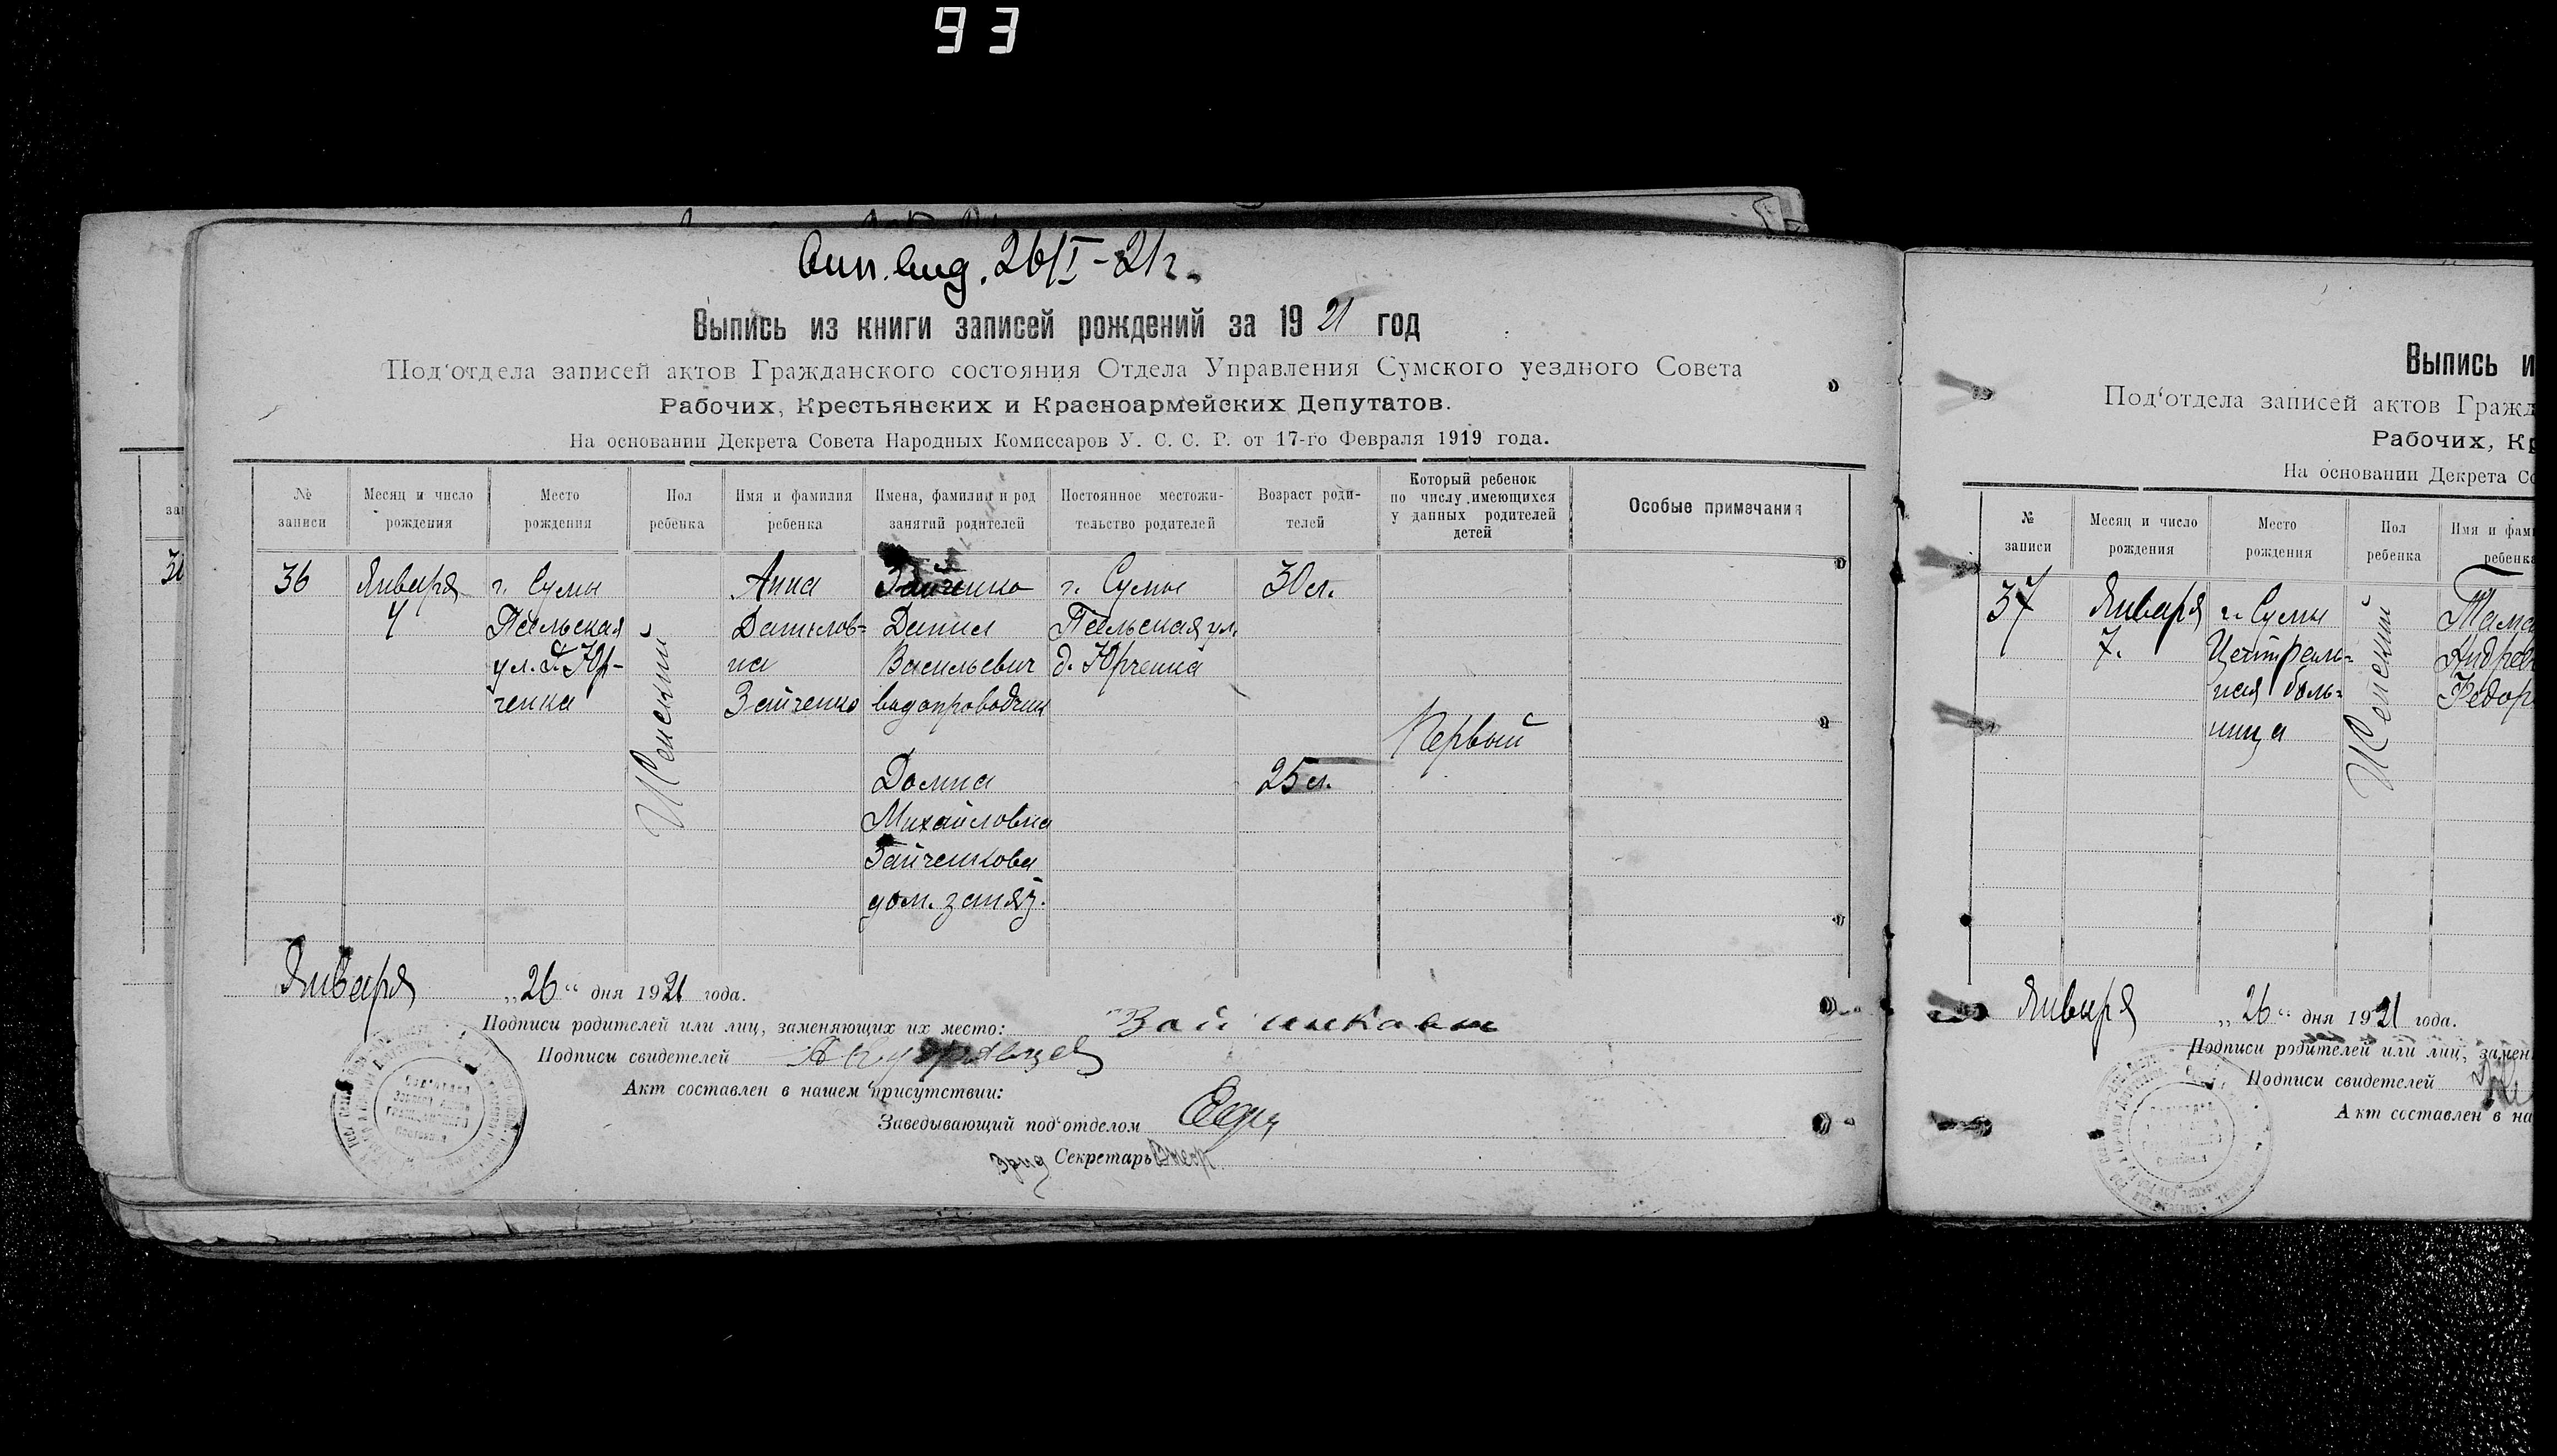 93
Вып. выд. 26/I-21г.
Выпись из книги записей рождений за 1921 год
Под'отдела записей актов Гражданского состояния Отдела Управления Сумского уездного Совета
Рабочих, Крестьянских и Красноармейских Депутатов.
На основании Декрета Совета Народных Комиссаров У. С. С. Р. от 17-го Февраля 1919 года.
№ записи
Месяц и число рождения
Место рождения
Пол ребенка
Имя и фамилия ребенка
Имена, фамилии и род занятий родителей
Постоянное местожительство родителей
Возраст родителей
Который ребенок по числу имеющихся у данных родителей детей
Особые примечания
36
Января
4
г. Сумы
Псельская
ул. д. Юр-
ченка
Женский
Анна
Данилов-
на
Зайченко
Зайченко
Данил
Васильевич
водопроводчик
Домна
Михайловна
Зайченкова
дом. занят.
г. Сумы
Псельская ул.
д. Юрченка
30 л.
25 л.
Первый
Января „26“ дня 1921 года.
Подписи родителей или лиц, заменяющих их место:
Подписи свидетелей
Акт составлен в нашем присутствии:
Заведывающий под'отделом
Секретарь
Выпись и
Под'отдела записей актов Гражд
Рабочих, Кр
На основании Декрета Со
№ записи
Месяц и число рождения
Место рождения
Пол ребенка
Имя и фам
ребенка
37
Января
7.
г. Сумы
Централь-
ная боль-
ница
Женский
Тама
Андрее
Федор
Января „26“ дня 1921 года.
Подписи родителей или лиц, замен
Подписи свидетелей
Акт составлен в на